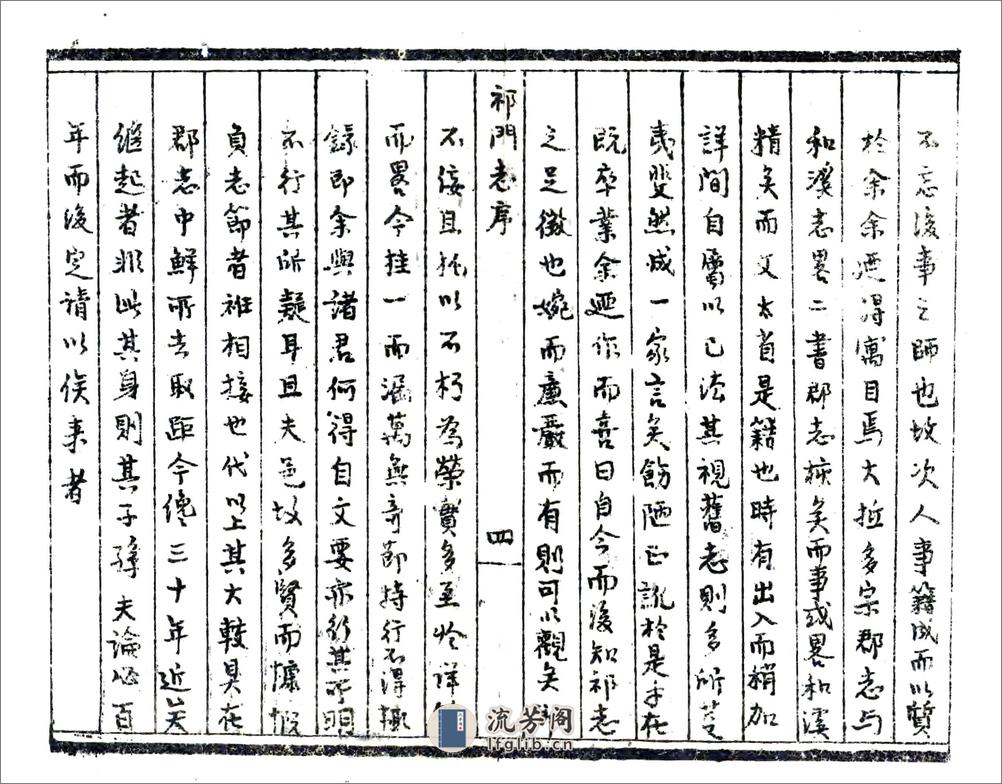 不忘後事之師也故次人事籍成而以質
於余余遂得寓目焉大抵多宗郡志与
和溪志畧二書郡志核矣而事或畧和溪
精矣而文太省是籍也時有出入而稍加
詳間自屬以己法其視舊志則多所芟
成一家言矣飭陋正訛於是乎在
既卒業余廼作而喜曰自今而後知祁志
之足徵也婉而廉嚴而有則可以觀矣
祁門志序
四
不佞且抵以不朽為榮實多至於詳
而畧今挂一而漏萬無奇節特行不得輒
錄即余與諸君何得自文要亦行其所明
不行其所疑耳且夫邑故多賢而慷慨
負志節者班相接也代以上其大較具在
郡志中鮮所去取距今纔三十年近矣
繼起者非此其身則其子孫夫論必百
年而後定請以俟来者
流芳阁
lfglib.cn